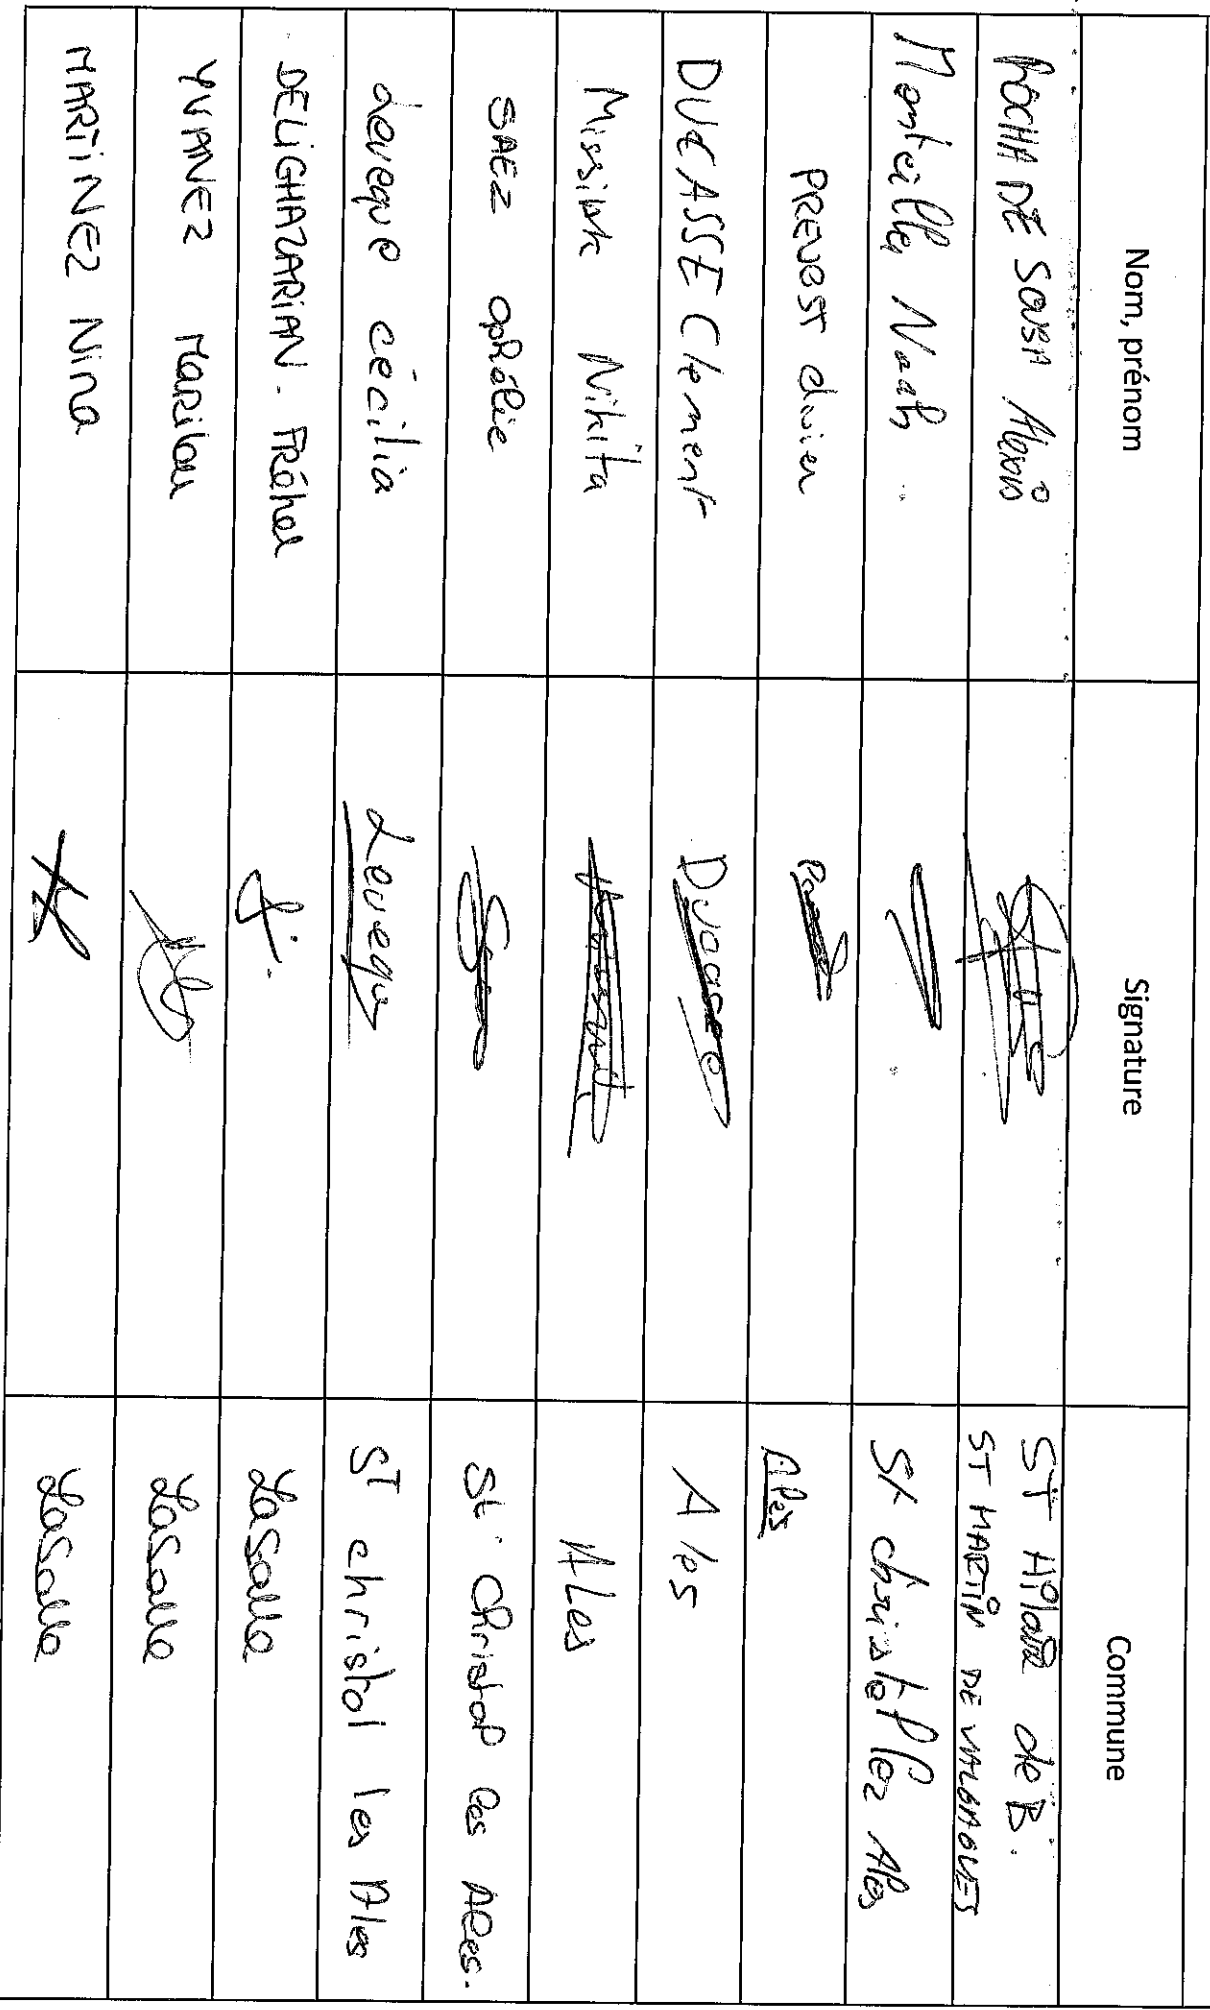 Nom, prénom Signature Commune
ROCHA DE SOUSA Alexis ST Hilaire de B.
ST MARTIN DE VALGALGUES
Monteille Noah St christol lez Alès
PREVOST Alès
DUCASSE Clement Ducasse Ales
Nikita ALes
SAEZ ophélie St. Christol les Ales.
Leveque cécilia Leveque ST christol les Ales
DELIGHAZARIAN. Tréhel LaSalle
YVANEZ Marilou LaSalle
MARTINEZ Nina LaSalle